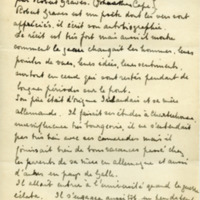 par Robert Graves. (Jonathan Cape.)
Robert Graves est un poète dont les vers sont
appréciés, il écrit son autobiographie
Le récit est très fort mais aussi il montre
comment la guerre changeait les hommes, leurs
points de vues, leurs idées, leurs sentiments,
surtout en ceux qui sont restés pendant de
longues périodes sur le front.
Son père était d'origine Irlandaise et sa mère
allemande. Il faisait ses études à Charterhouse
malheureux très bourgeois, il ne s'entendait
pas très bien avec ses camarades mais il
jouait très de bons vacances passé chez
les parents de sa mère en allemagne et aussi
d'autres en pays de galle.
Il allait entrer à l'université quand la guerre
éclata. Il s'engagea aussi tôt